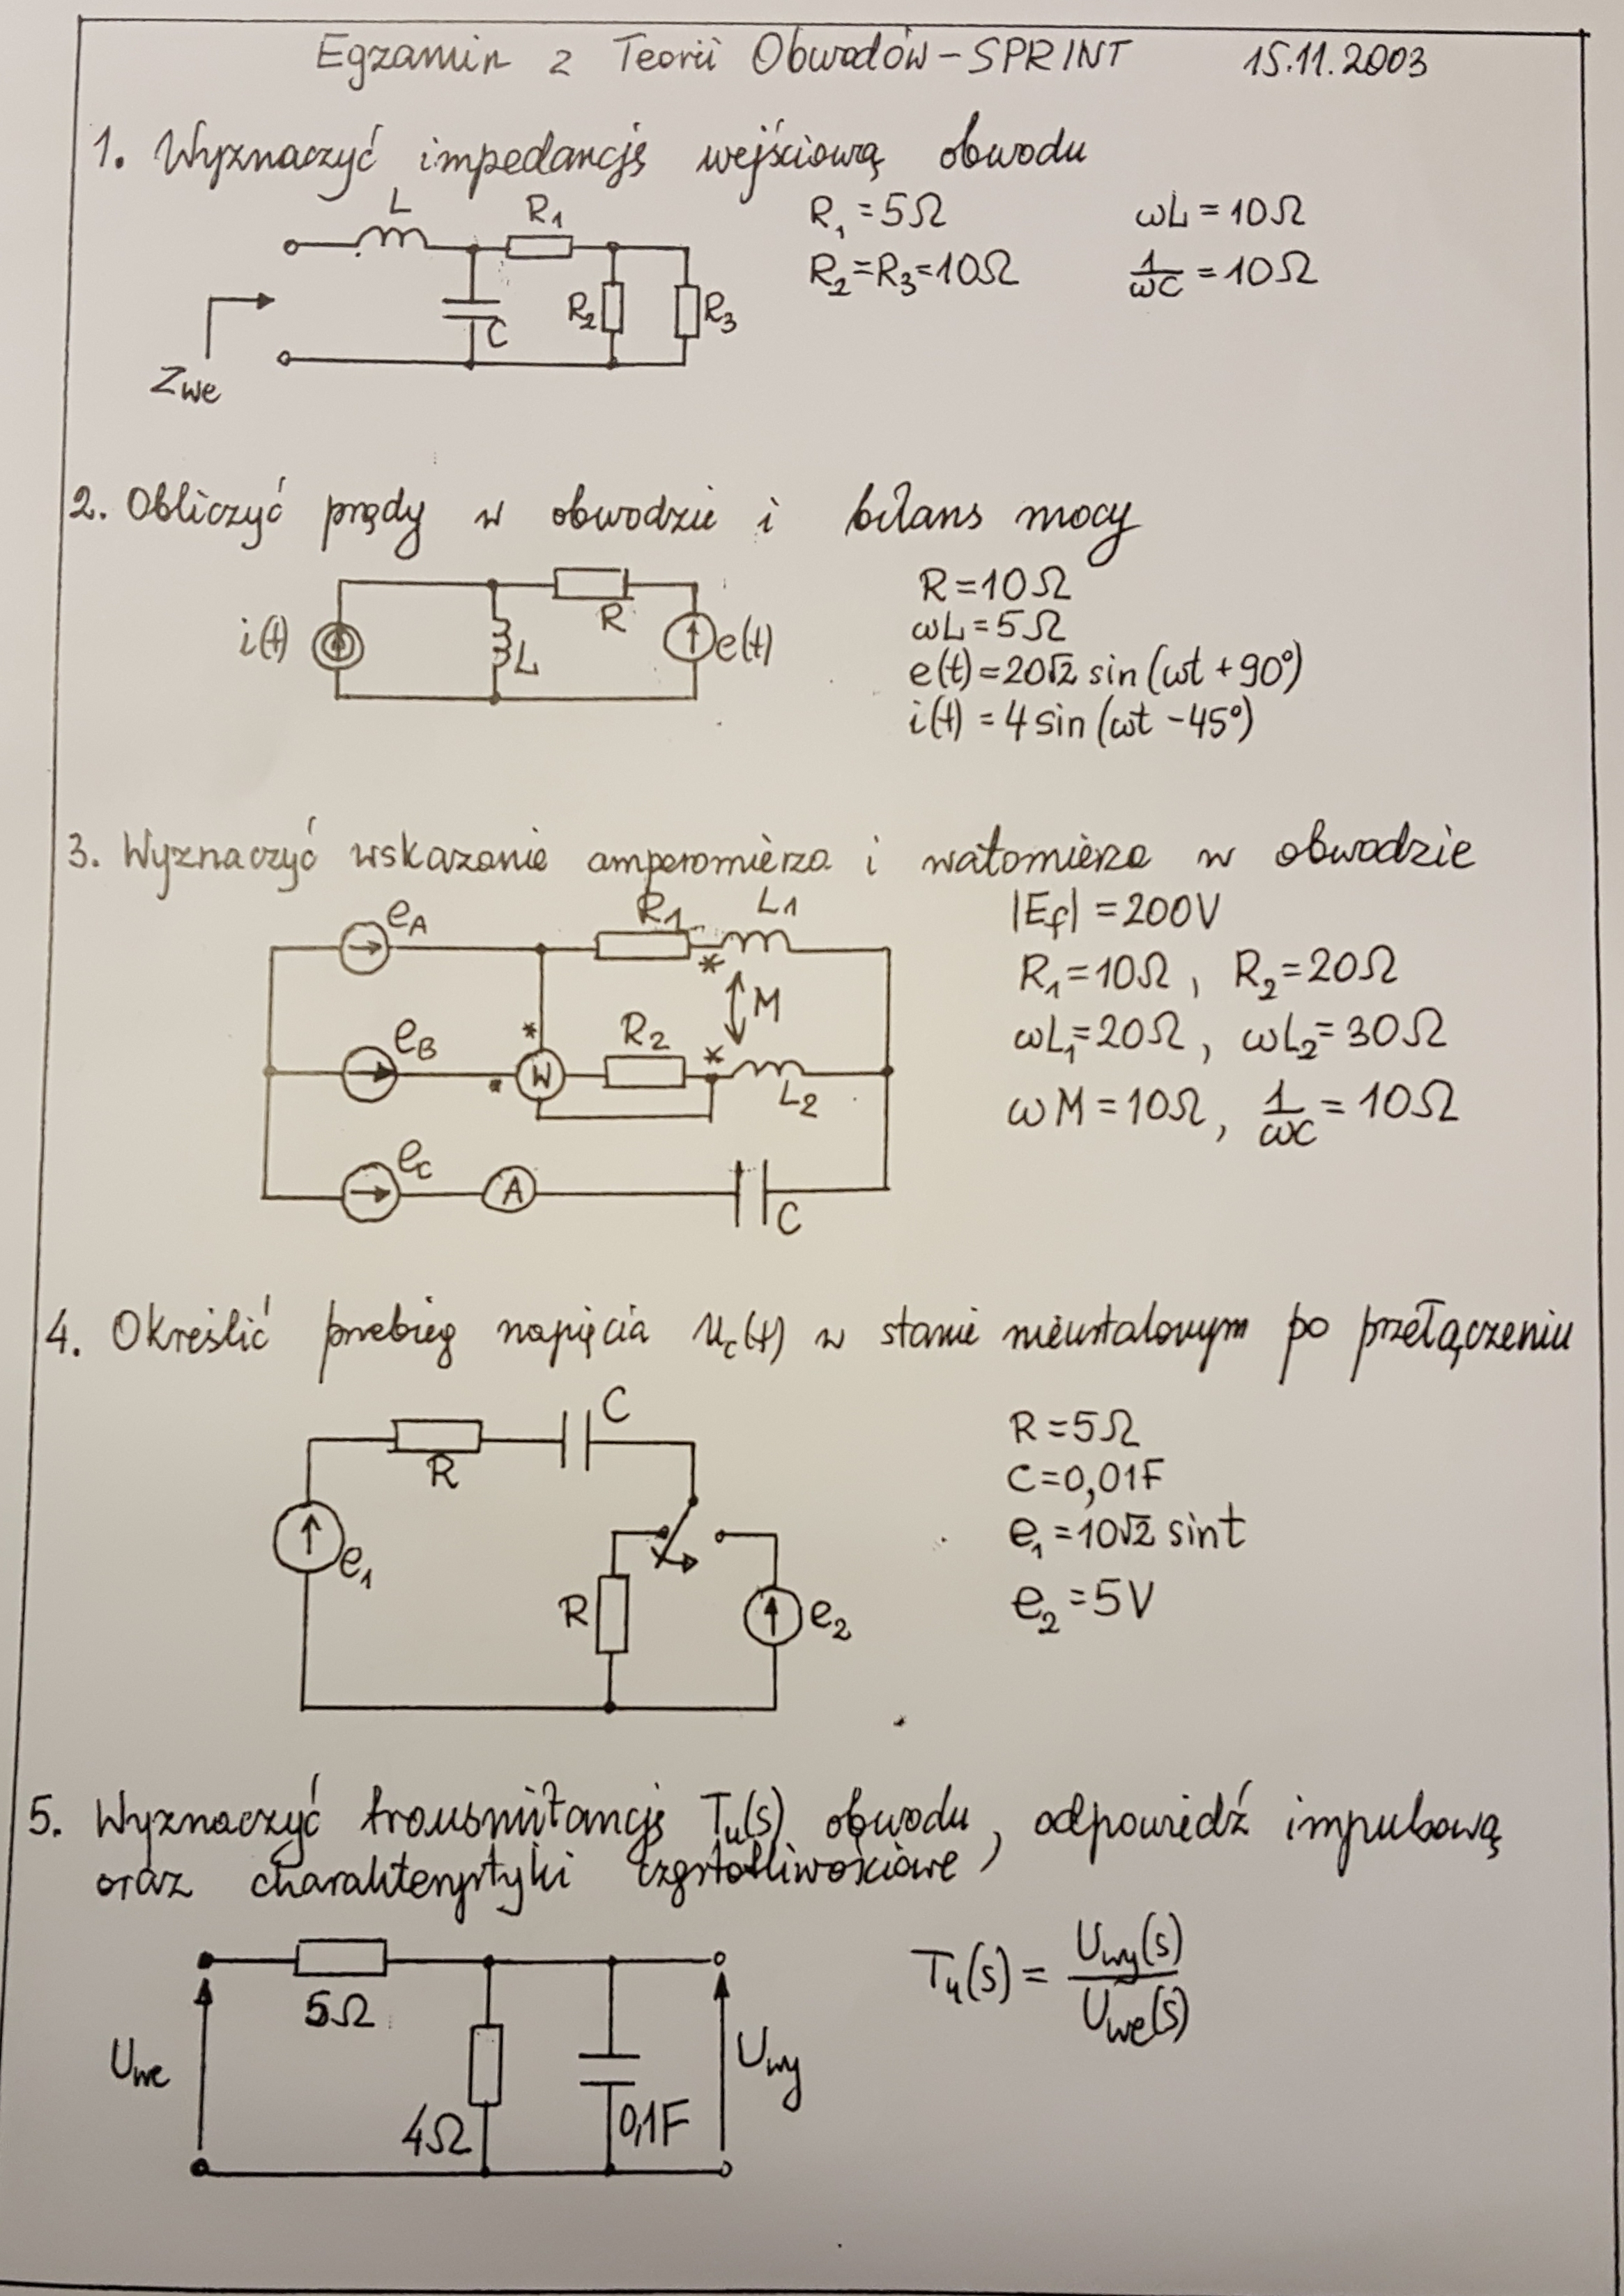 Egzamin z Teorii Obwodów - SPRINT 15.11.2003
1. Wyznaczyć impedancję wejściową obwodu
L R₁ R₁ = 5Ω ωL = 10Ω
C R₂ R₃ R₂=R₃=10Ω 1/ωC = 10Ω
Zwe
2. Obliczyć prądy w obwodzie i bilans mocy
R = 10Ω
i(t) L R e(t) ωL = 5Ω
e(t) = 20√2 sin(ωt + 90°)
i(t) = 4 sin(ωt - 45°)
3. Wyznaczyć wskazanie amperomierza i watomierza w obwodzie
eA R₁ L₁ |Ef| = 200V
* M R₁=10Ω, R₂=20Ω
eB * * W R₂ * L₂ ωL₁=20Ω, ωL₂=30Ω
ωM = 10Ω, 1/ωC = 10Ω
eC A C
4. Określić przebieg napięcia uc(t) w stanie nieustalonym po przełączeniu
R C R = 5Ω
C = 0,01F
e₁ e₁ = 10√2 sint
R e₂ e₂ = 5V
5. Wyznaczyć transmitancję Tu(s) obwodu, odpowiedź impulsową
oraz charakterystyki częstotliwościowe
5Ω Tu(s) = Uwy(s)/Uwe(s)
Uwe Uwy
4Ω 0,1F